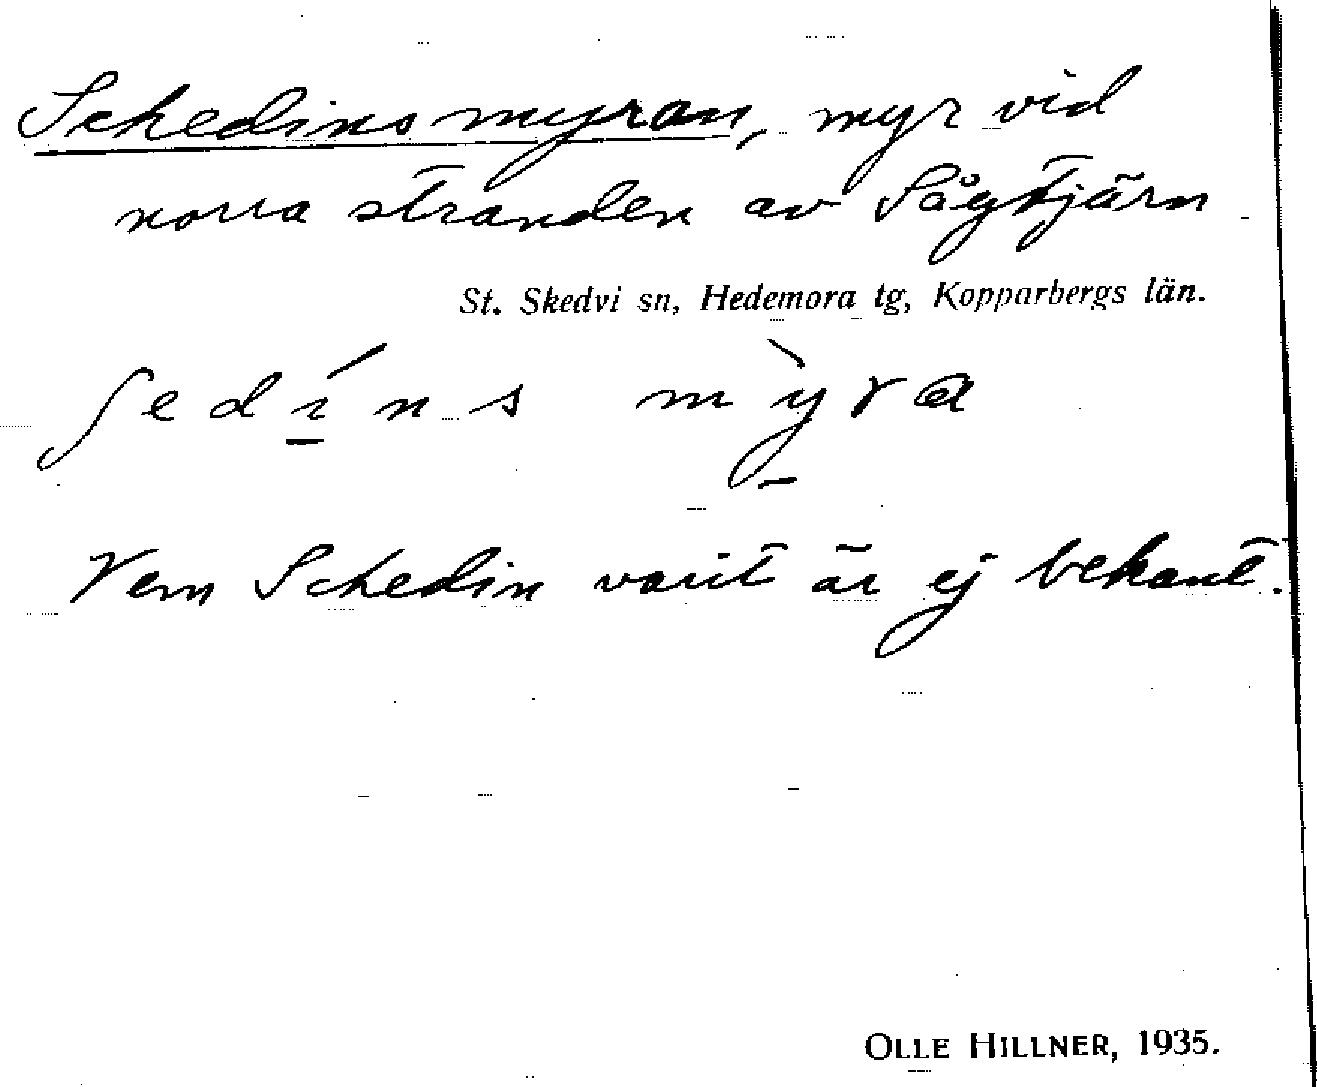 Schedinsmyran, myr vid
norra stranden av Sågtjärn
St. Skedvi sn, Hedemora tg, Kopparbergs län.
ʃedí̱ns mỳ̱ra
Vem Schedin varit är ej bekant.
OLLE HILLNER, 1935.